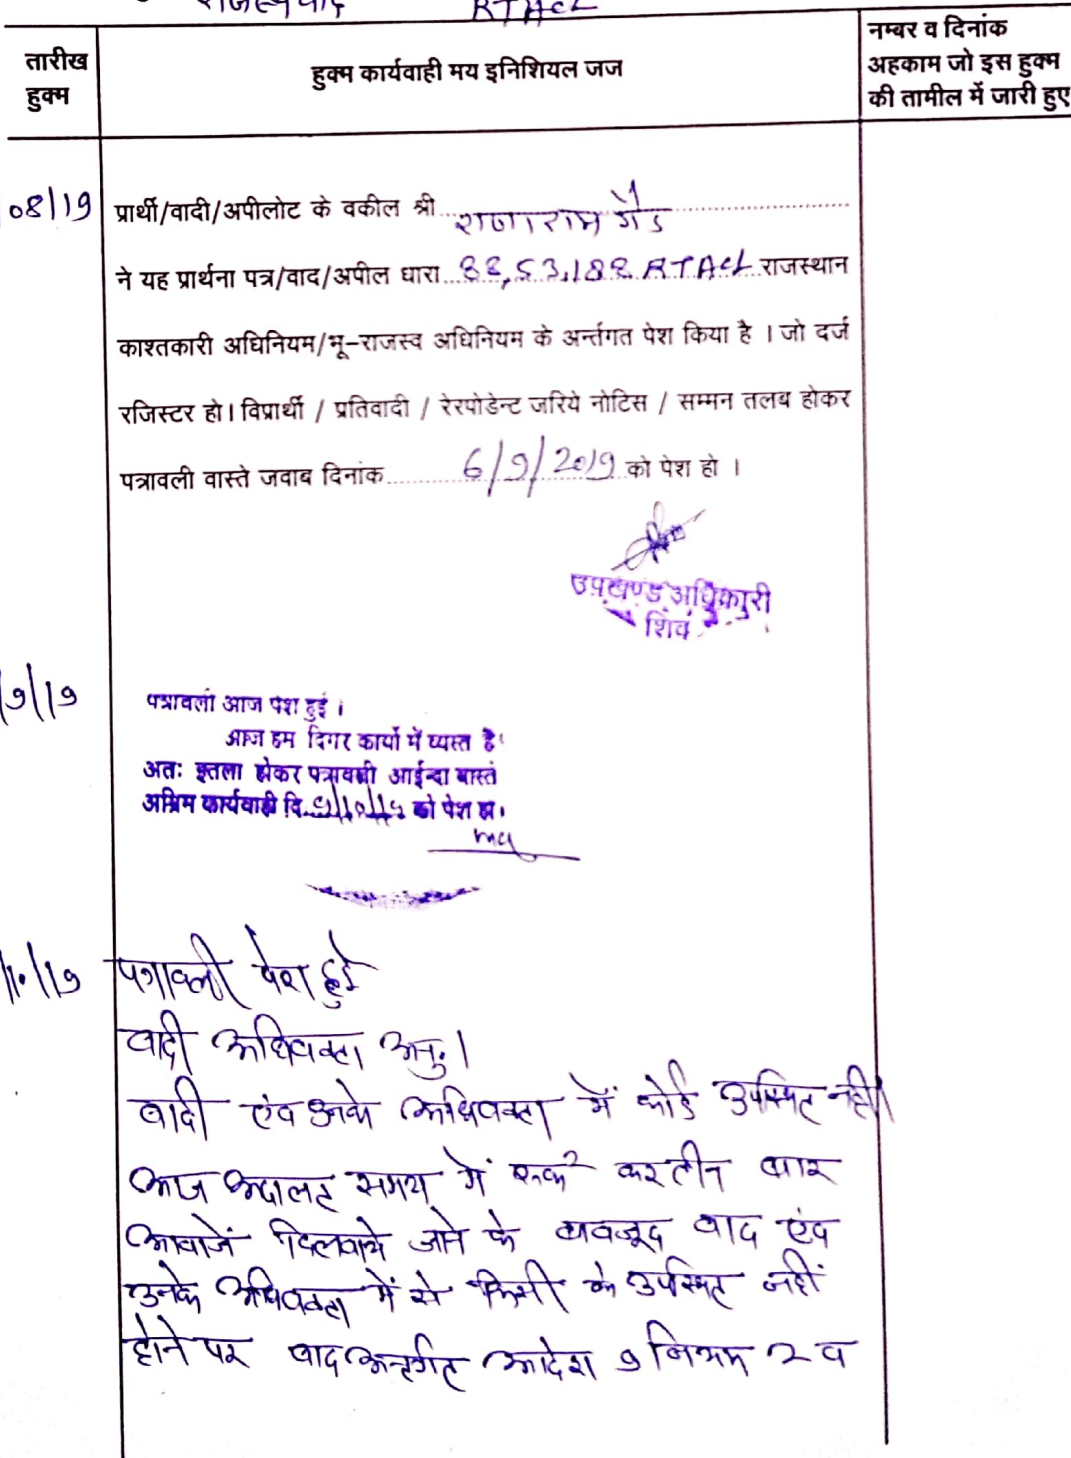 राजस्व वाद RTAct
तारीख
हुक्म
हुक्म कार्यवाही मय इनिशियल जज
नम्बर व दिनांक
अहकाम जो इस हुक्म
की तामील में जारी हुए
08/19 प्रार्थी/वादी/अपीलोट के वकील श्री राणाराम गौड
ने यह प्रार्थना पत्र/वाद/अपील धारा 88,53,188 RTAct राजस्थान
काश्तकारी अधिनियम/भू-राजस्व अधिनियम के अर्न्तगत पेश किया है । जो दर्ज
रजिस्टर हो। विप्रार्थी / प्रतिवादी / रेरपोडेन्ट जरिये नोटिस / सम्मन तलब होकर
पत्रावली वास्ते जवाब दिनांक 6/9/2019 को पेश हो ।
उपखण्ड अधिकारी
शिव
/9/19 पत्रावली आज पेश हुई ।
आज हम दिगर कार्यो में व्यस्त है
अतः इतला होकर पत्रावली आईन्दा वास्ते
अग्रिम कार्यवाही दि. को पेश हो।
/10/19 पत्रावली पेश हुई
वादी अधिवक्ता अनु.।
वादी एंव उनके अधिवक्ता में कोई उपस्थित नहीं
आज अदालत समय में रूक2 कर तीन बार
आवाजें दिलवाये जाने के बावजूद वाद एंव
उनके अधिवक्ता में से किसी के उपस्थित नहीं
होने पर वाद अन्तर्गत आदेश 9 नियम 2 व